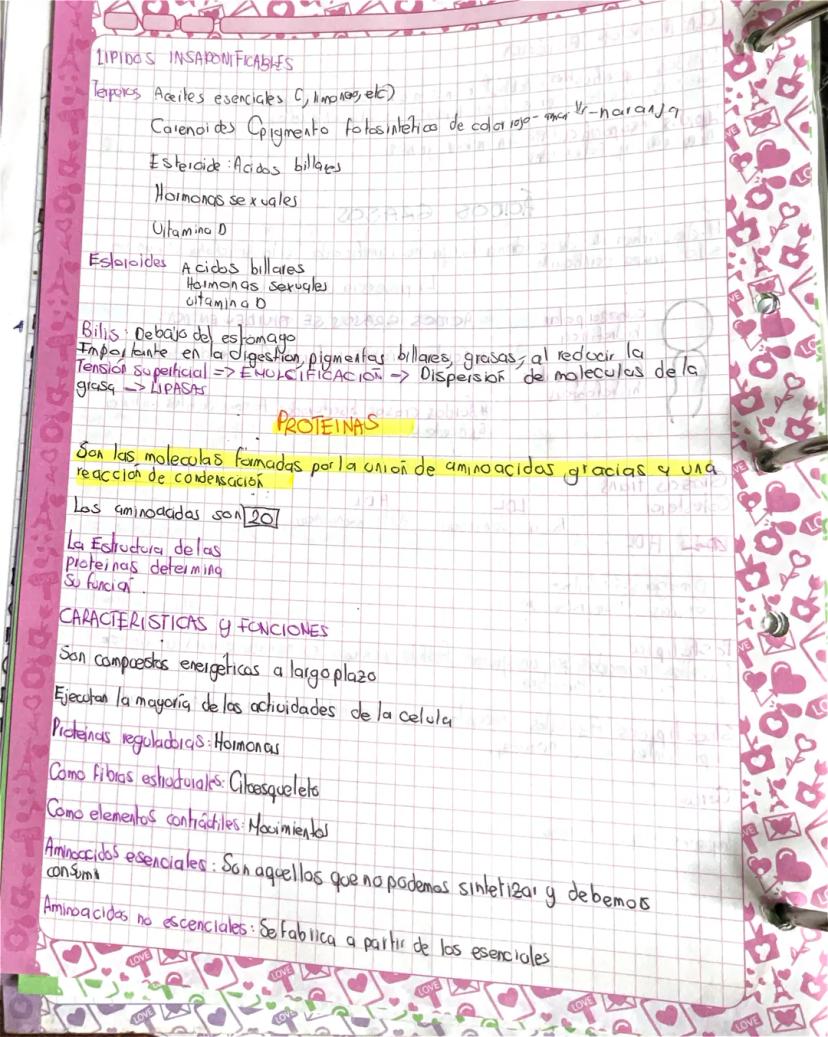 LIPIDOS INSAPONIFICABLES
Terpenos Aceites esenciales (, limoneno, etc)
Carenoides (pigmento fotosintetico de color rojo- -naranja
Esteroide: Acidos billares
Hormonas sexuales
Vitamina D
Esteroides Acidos billares
Hormonas sexuales
vitamina D
Bilis: Debajo del estomago
Importante en la digestion, pigmentas billares, grasas, al reducir la
Tensión superficial => EMULCIFICACION -> Dispersion de moleculas de la
grasa -> LIPASAS
PROTEINAS
Son las moleculas formadas por la union de aminoacidos gracias y una
reacción de condensación
Los aminoacidos son 20
La Estructura de las
proteinas determina
su funcion.
CARACTERISTICAS y FUNCIONES
Son compuestos energéticos a largo plazo
Ejecutan la mayoría de las actividades de la celula
Proteinas reguladoras: Hormonas
Como fibras estructurales: Citoesqueleto
Como elementos contráctiles: Movimientos
Aminoacidos esenciales: Son aquellos que no podemos sintetizar y debemos
consumir
Aminoacidos no escenciales: Se fabrica a partir de los esenciales
LOVE